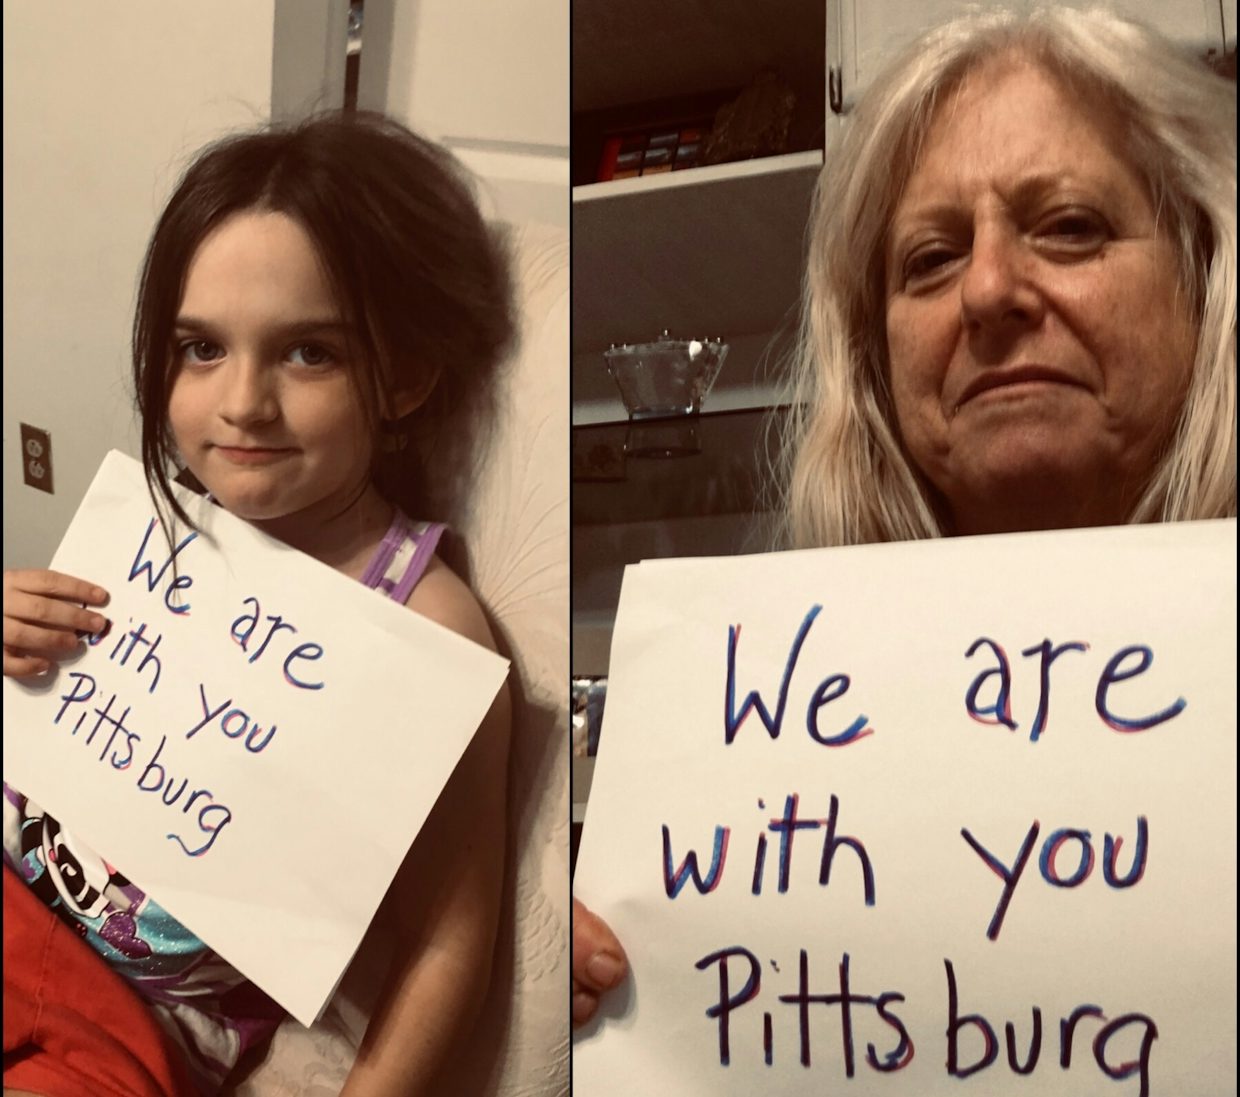 We are
with you
Pittsburg
We are
with you
Pittsburg